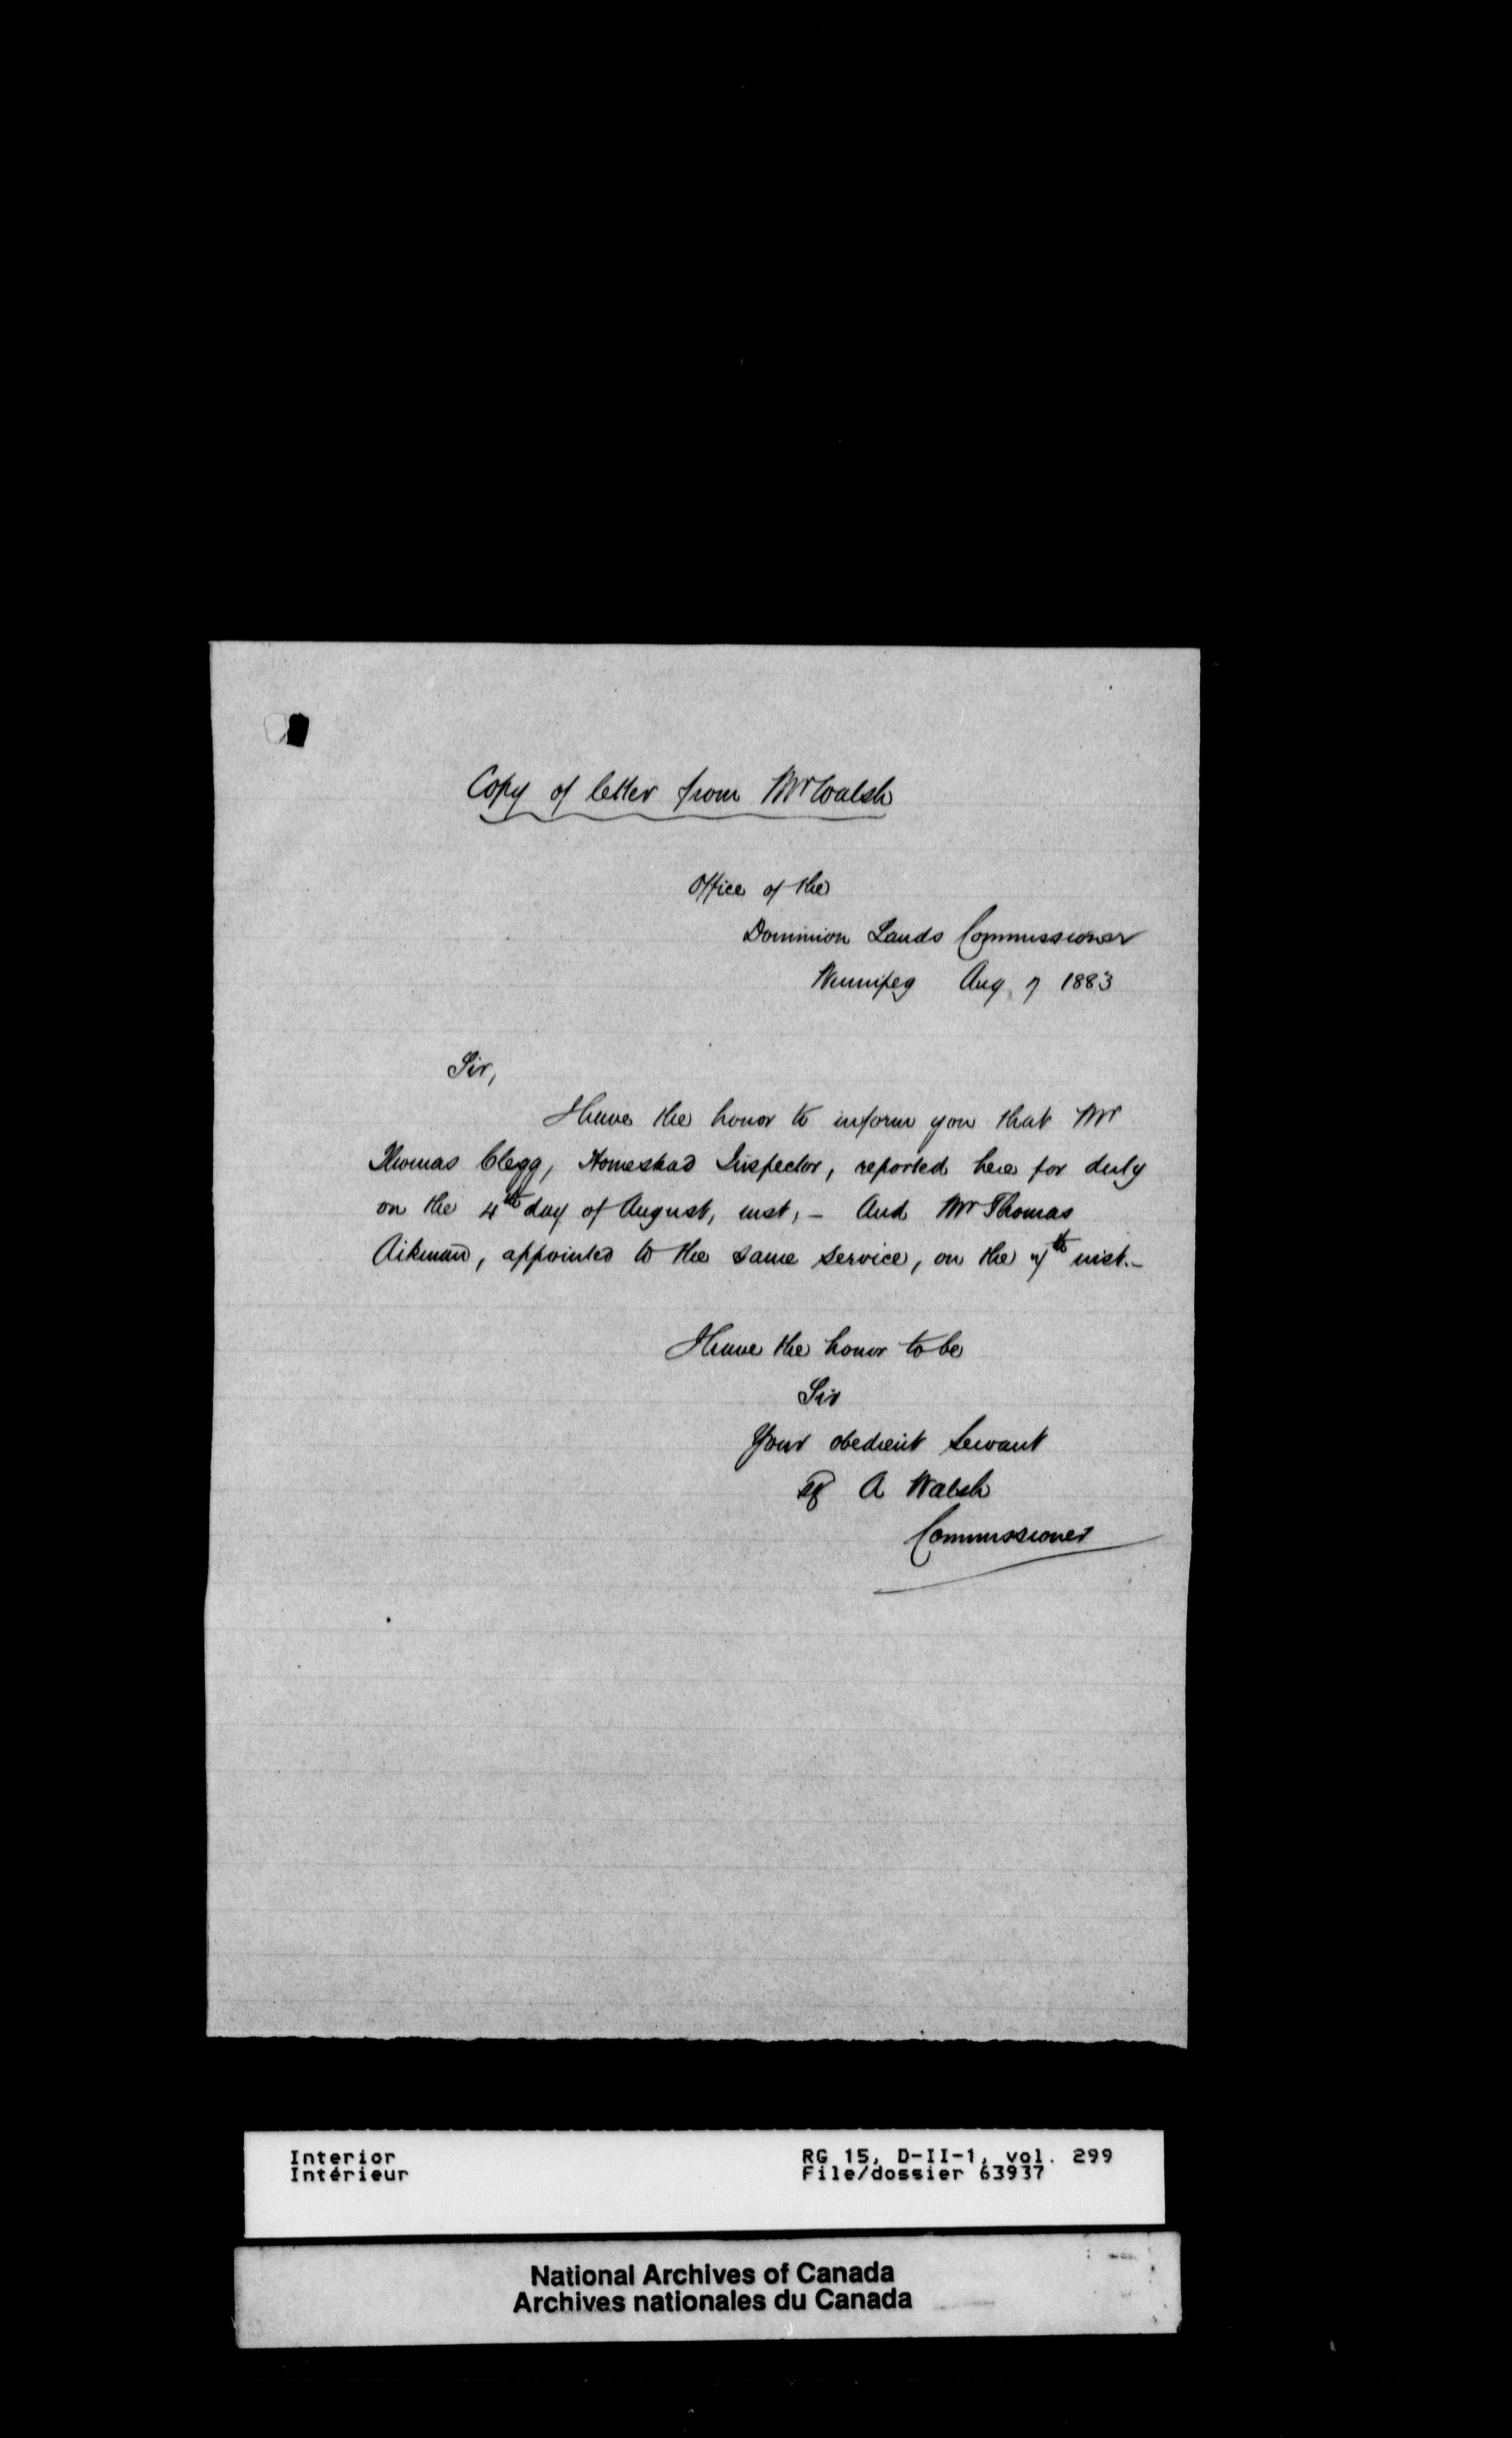 Copy of letter from Mr Walsh
Office of the
Dominion Lands Commissioner
Winnipeg Aug 7 1883
Sir,
I have the honor to inform you that Mr
Thomas Clegg, Homestead Inspector, reported here for duty
on the 4th day of August, inst, – And Mr Thomas
Aikman, appointed to the same service, on the 7th inst. –
I have the honor to be
Sir
Your obedient Servant
sg A Walsh
Commissioner
Interior
Intérieur
RG 15, D-II-1, vol. 299
File/dossier 63937
National Archives of Canada
Archives nationales du Canada